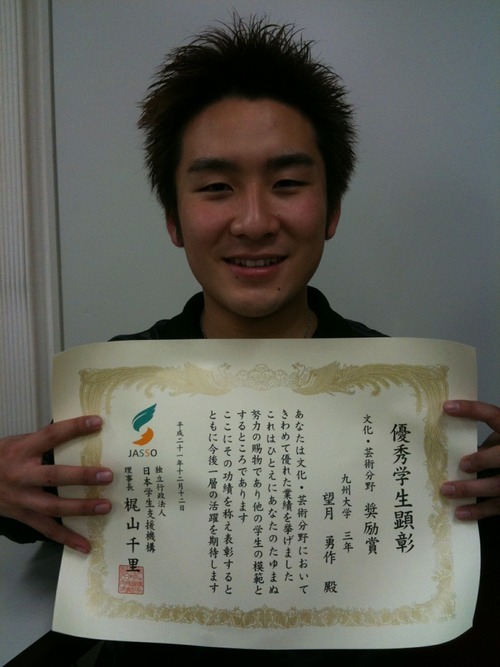 優秀学生顕彰
文化・芸術分野 奨励賞
九州大学 三年
望月 勇作 殿
あなたは文化・芸術分野において
きわめて優れた業績を挙げました
これはひとえにあなたのたゆまぬ
努力の賜物であり他の学生の模範と
するところであります
ここにその功績を称え表彰すると
ともに今後一層の活躍を期待します
平成二十一年十二月十二日
独立行政法人
日本学生支援機構
理事長 梶山千里
JASSO